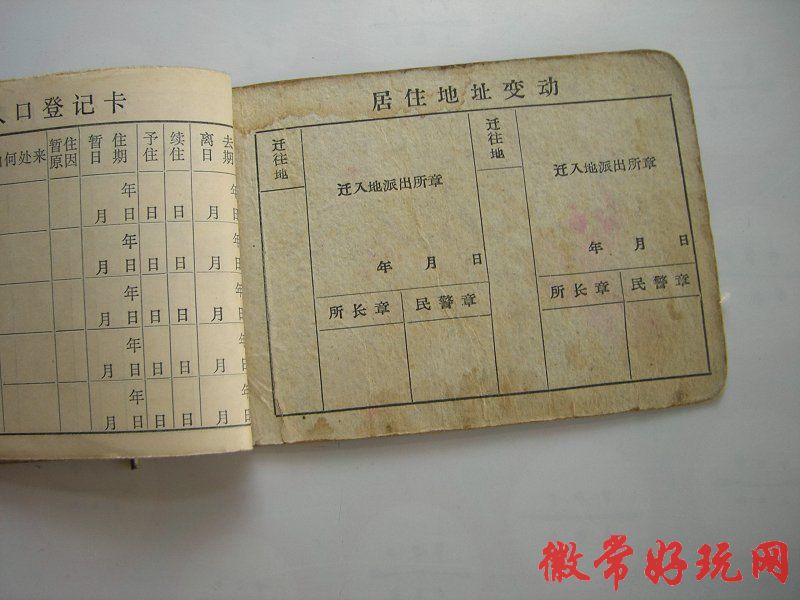 人口登记卡
如何处来 暂住原因 暂住日期 予住 续住 离去日期
年
月 日 日 日 月 日
年
月 日 日 日 月 日
年
月 日 日 日 月 日
年
月 日 日 日 月 日
年
月 日 日 日 月 日
居住地址变动
迁往地
迁入地派出所章
年 月 日
所长章 民警章
迁往地
迁入地派出所章
年 月 日
所长章 民警章
徽常好玩网